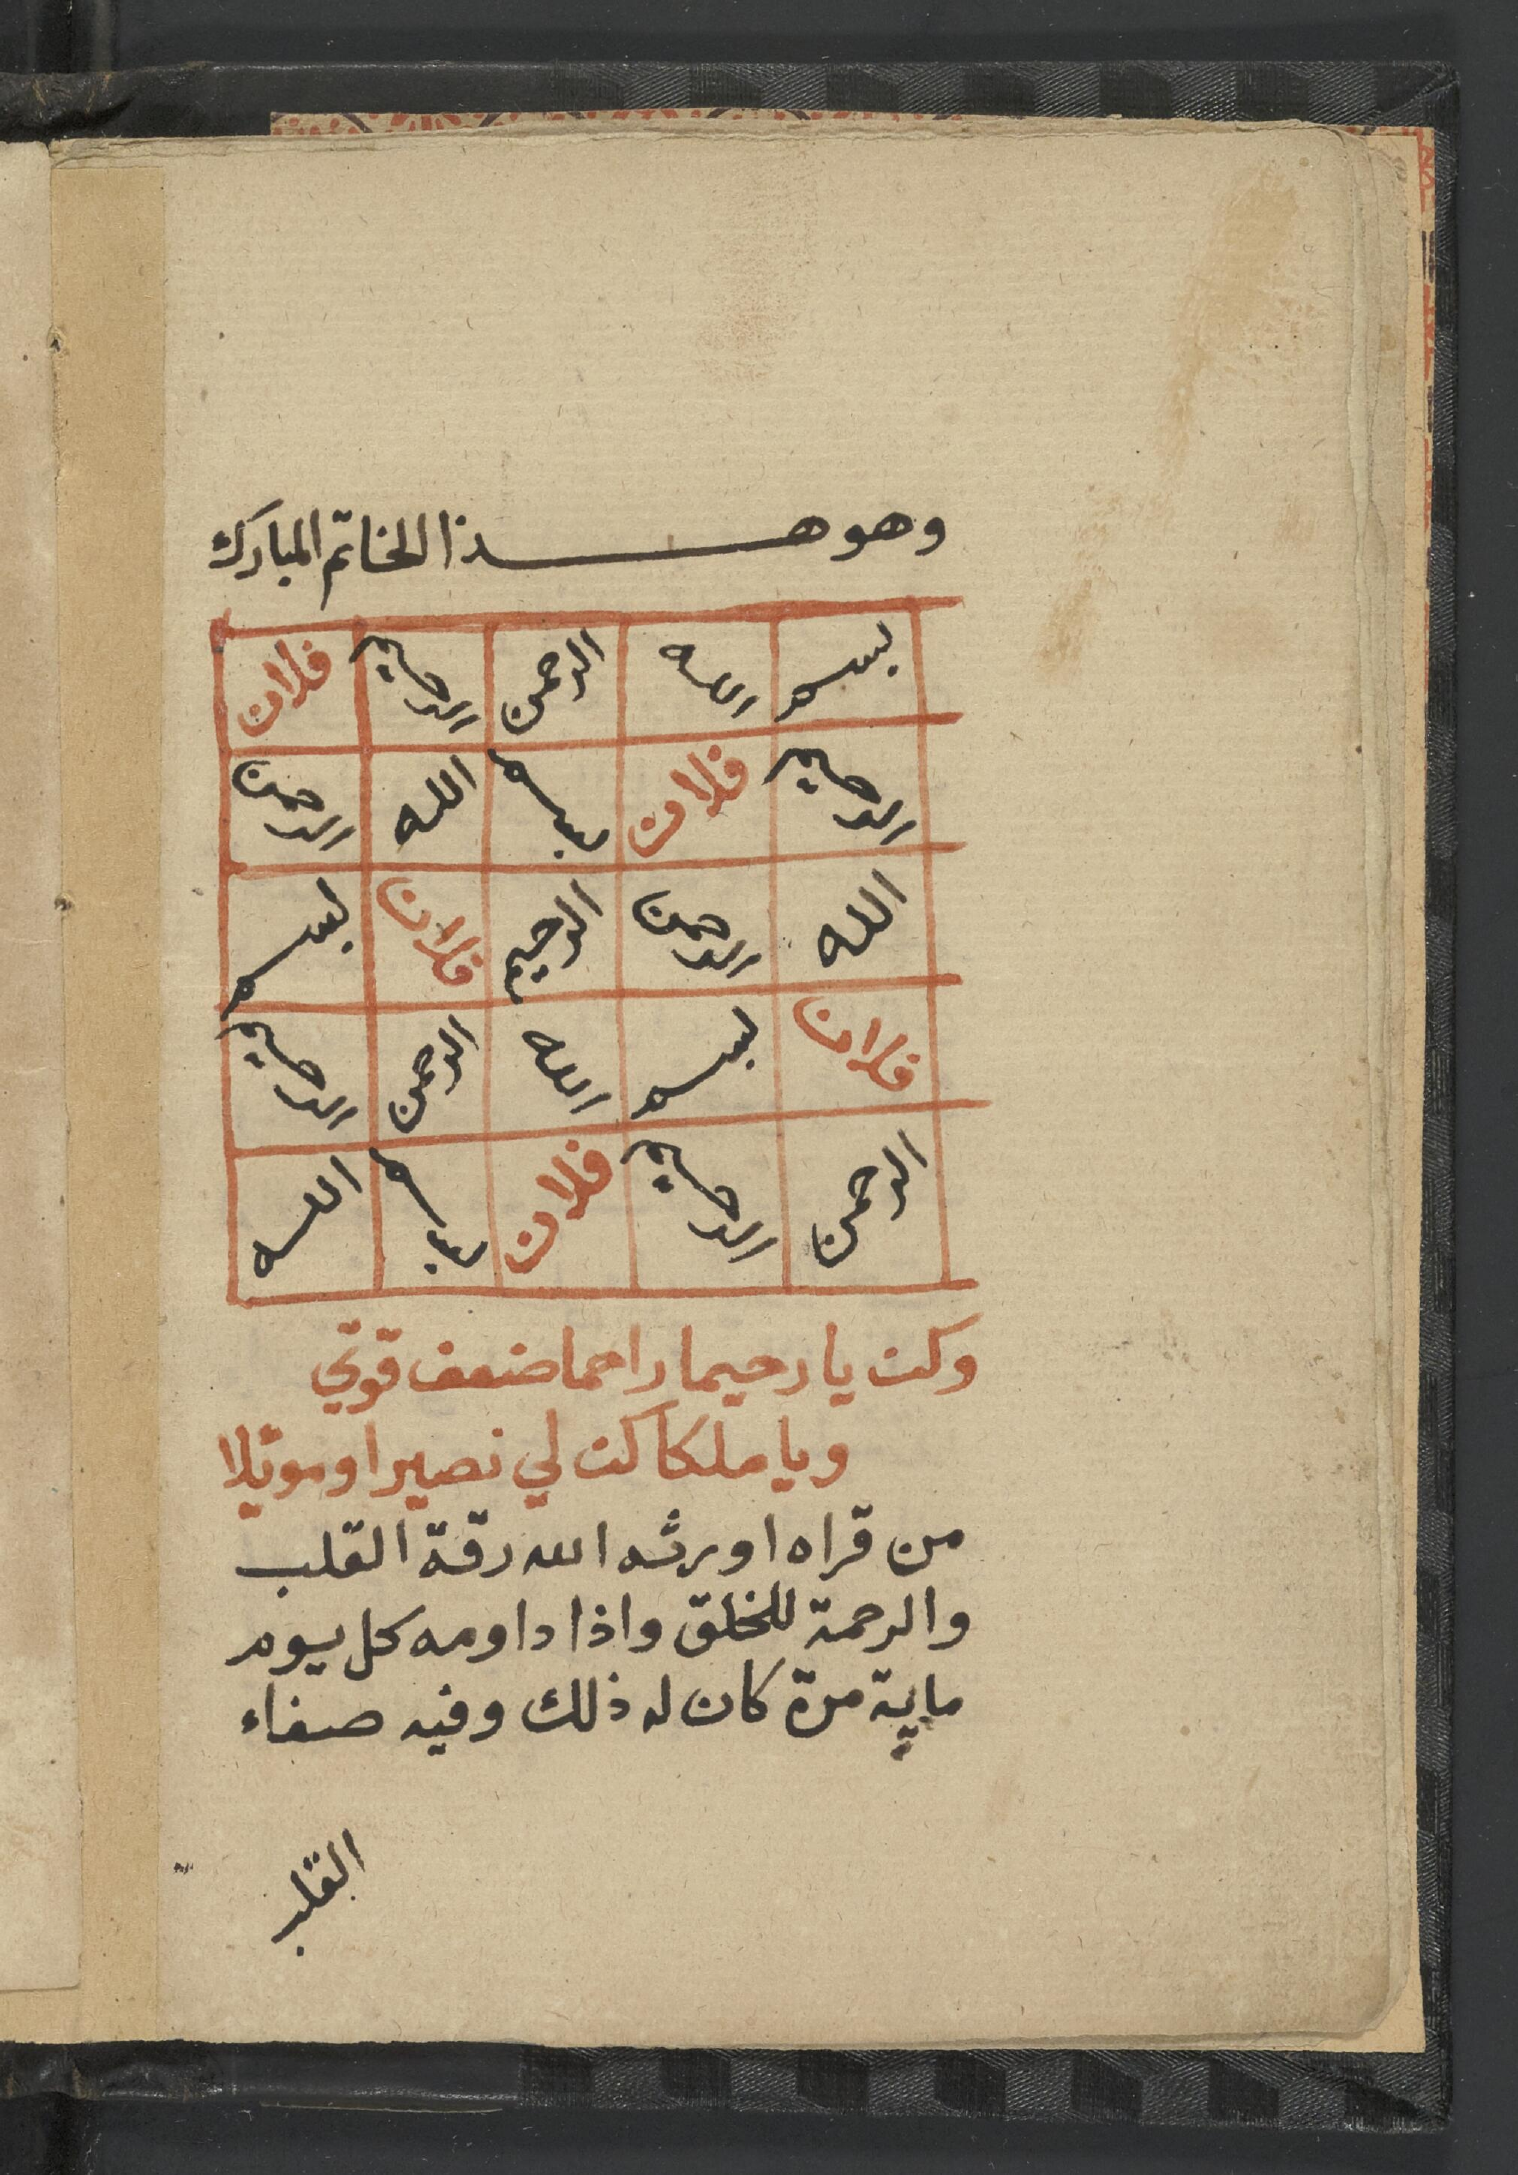 وهو هـذا الخاتم المبارك
بسم الله الرحمن الرحيم فلان
الرحيم فلان بسم الله الرحمن
الله الرحمن الرحيم فلان بسم
فلان بسم الله الرحمن الرحيم
الرحمن الرحيم فلان بسم الله
وكن يا رحيما راحما ضعف قوتي
ويا ملكا كن لي نصيرا وموئلا
من قراه اورثه الله رقة القلب
والرحمة للخلق واذا داومه كل يوم
ماية مرة كان له ذلك وفيه صفاء
القلب